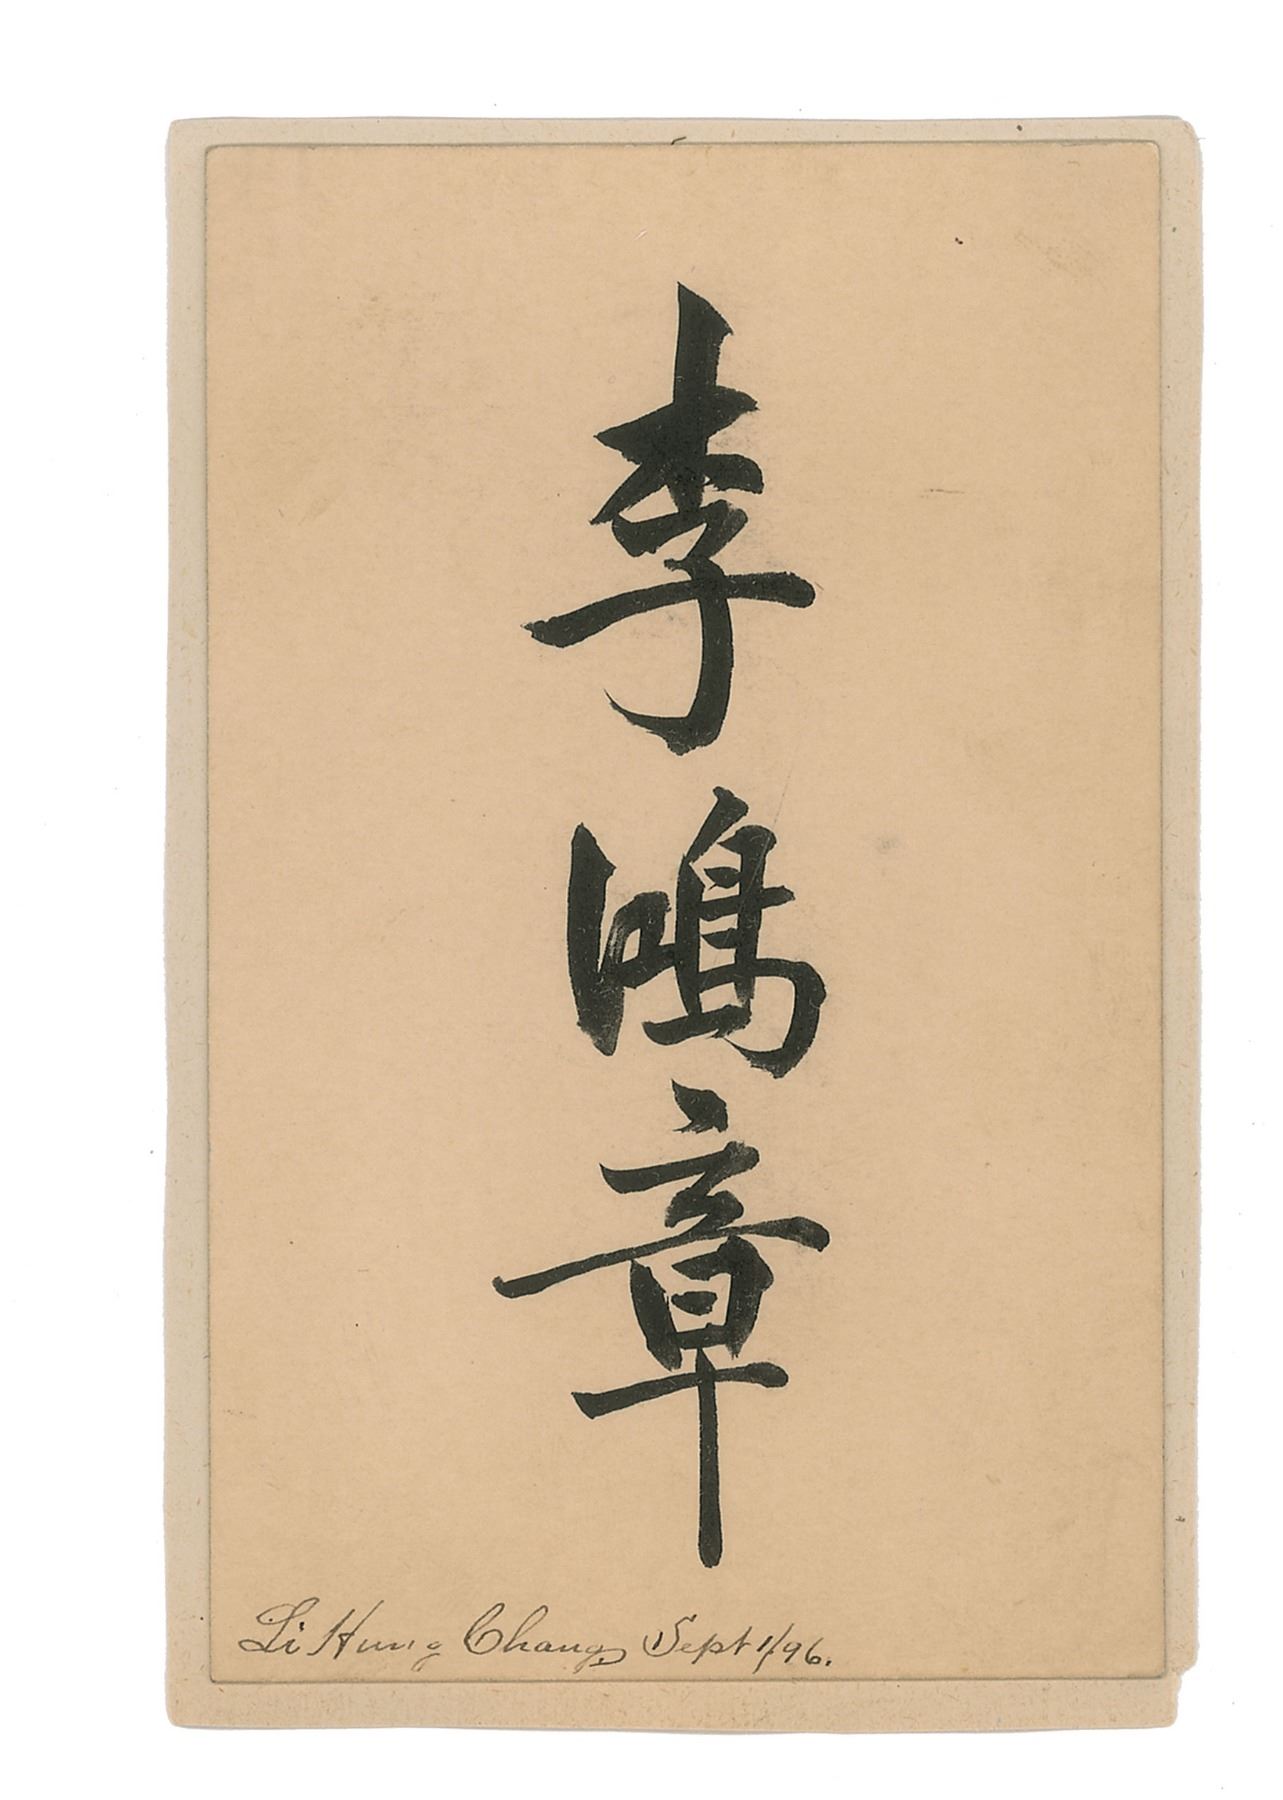 李鴻章
Li Hung Chang Sept 1/96.